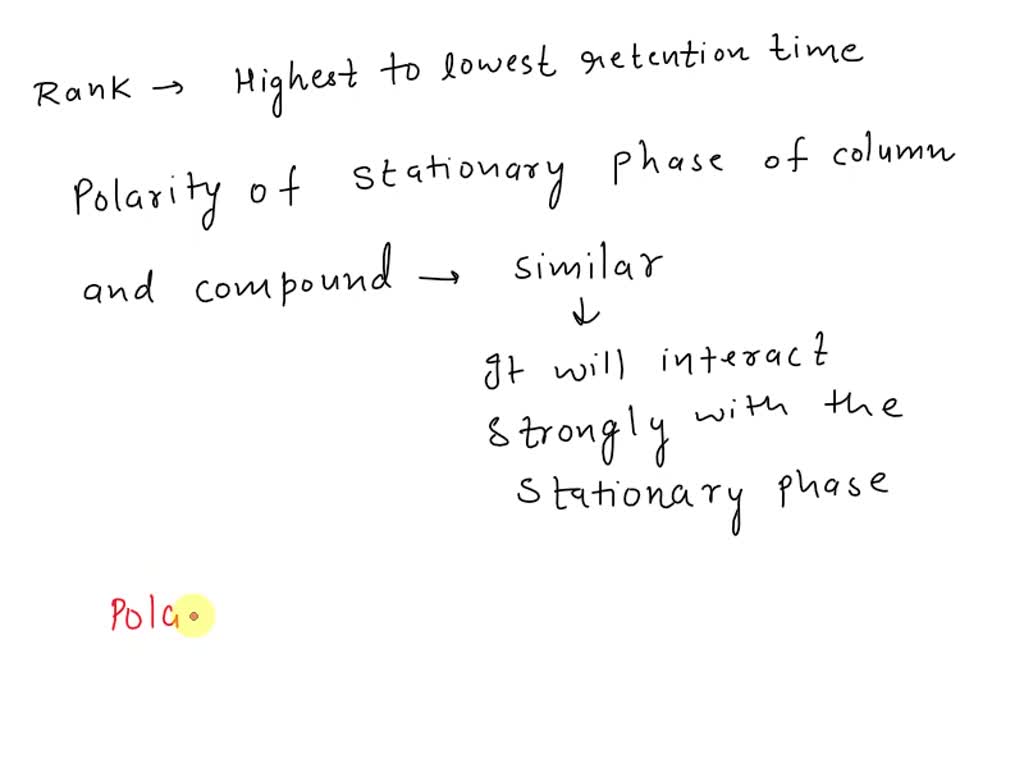 Rank → Highest to lowest retention time
Polarity of stationary phase of column
and compound → similar
↓
It will interact
strongly with the
stationary phase
Pola